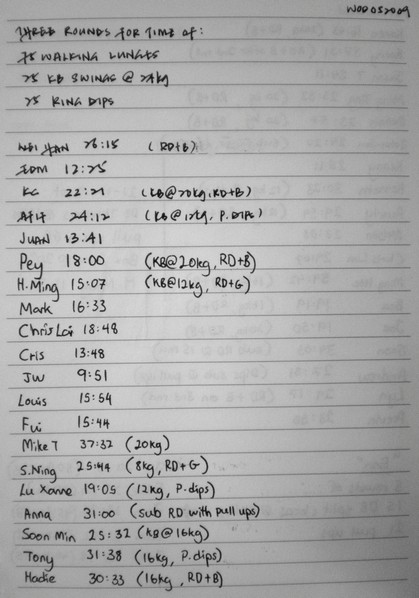 WOD 052009
THREE ROUNDS FOR TIME OF:
75 WALKING LUNGES
25 KB SWINGS @ 24kg
25 RING DIPS
WEI HAN 26:15 (RD+B)
12:25
KC 22:21 (KB@20kg, RD+B)
24:12 (KB@12kg, P. DIPS)
JUAN 13:41
Pey 18:00 (KB@20kg, RD+B)
H.Ming 15:07 (KB@12kg, RD+G)
Mark 16:33
Chris Lai 18:48
Cris 13:48
JW 9:51
Louis 15:54
Fui 15:44
Mike T 37:32 (20kg)
S.Ning 25:44 (8kg, RD+G)
Lu Xanne 19:05 (12kg, P.dips)
Anna 31:00 (sub RD with pull ups)
Soon Min 25:32 (KB@16kg)
Tony 31:38 (16kg, P.dips)
Hadie 30:33 (16kg, RD+B)